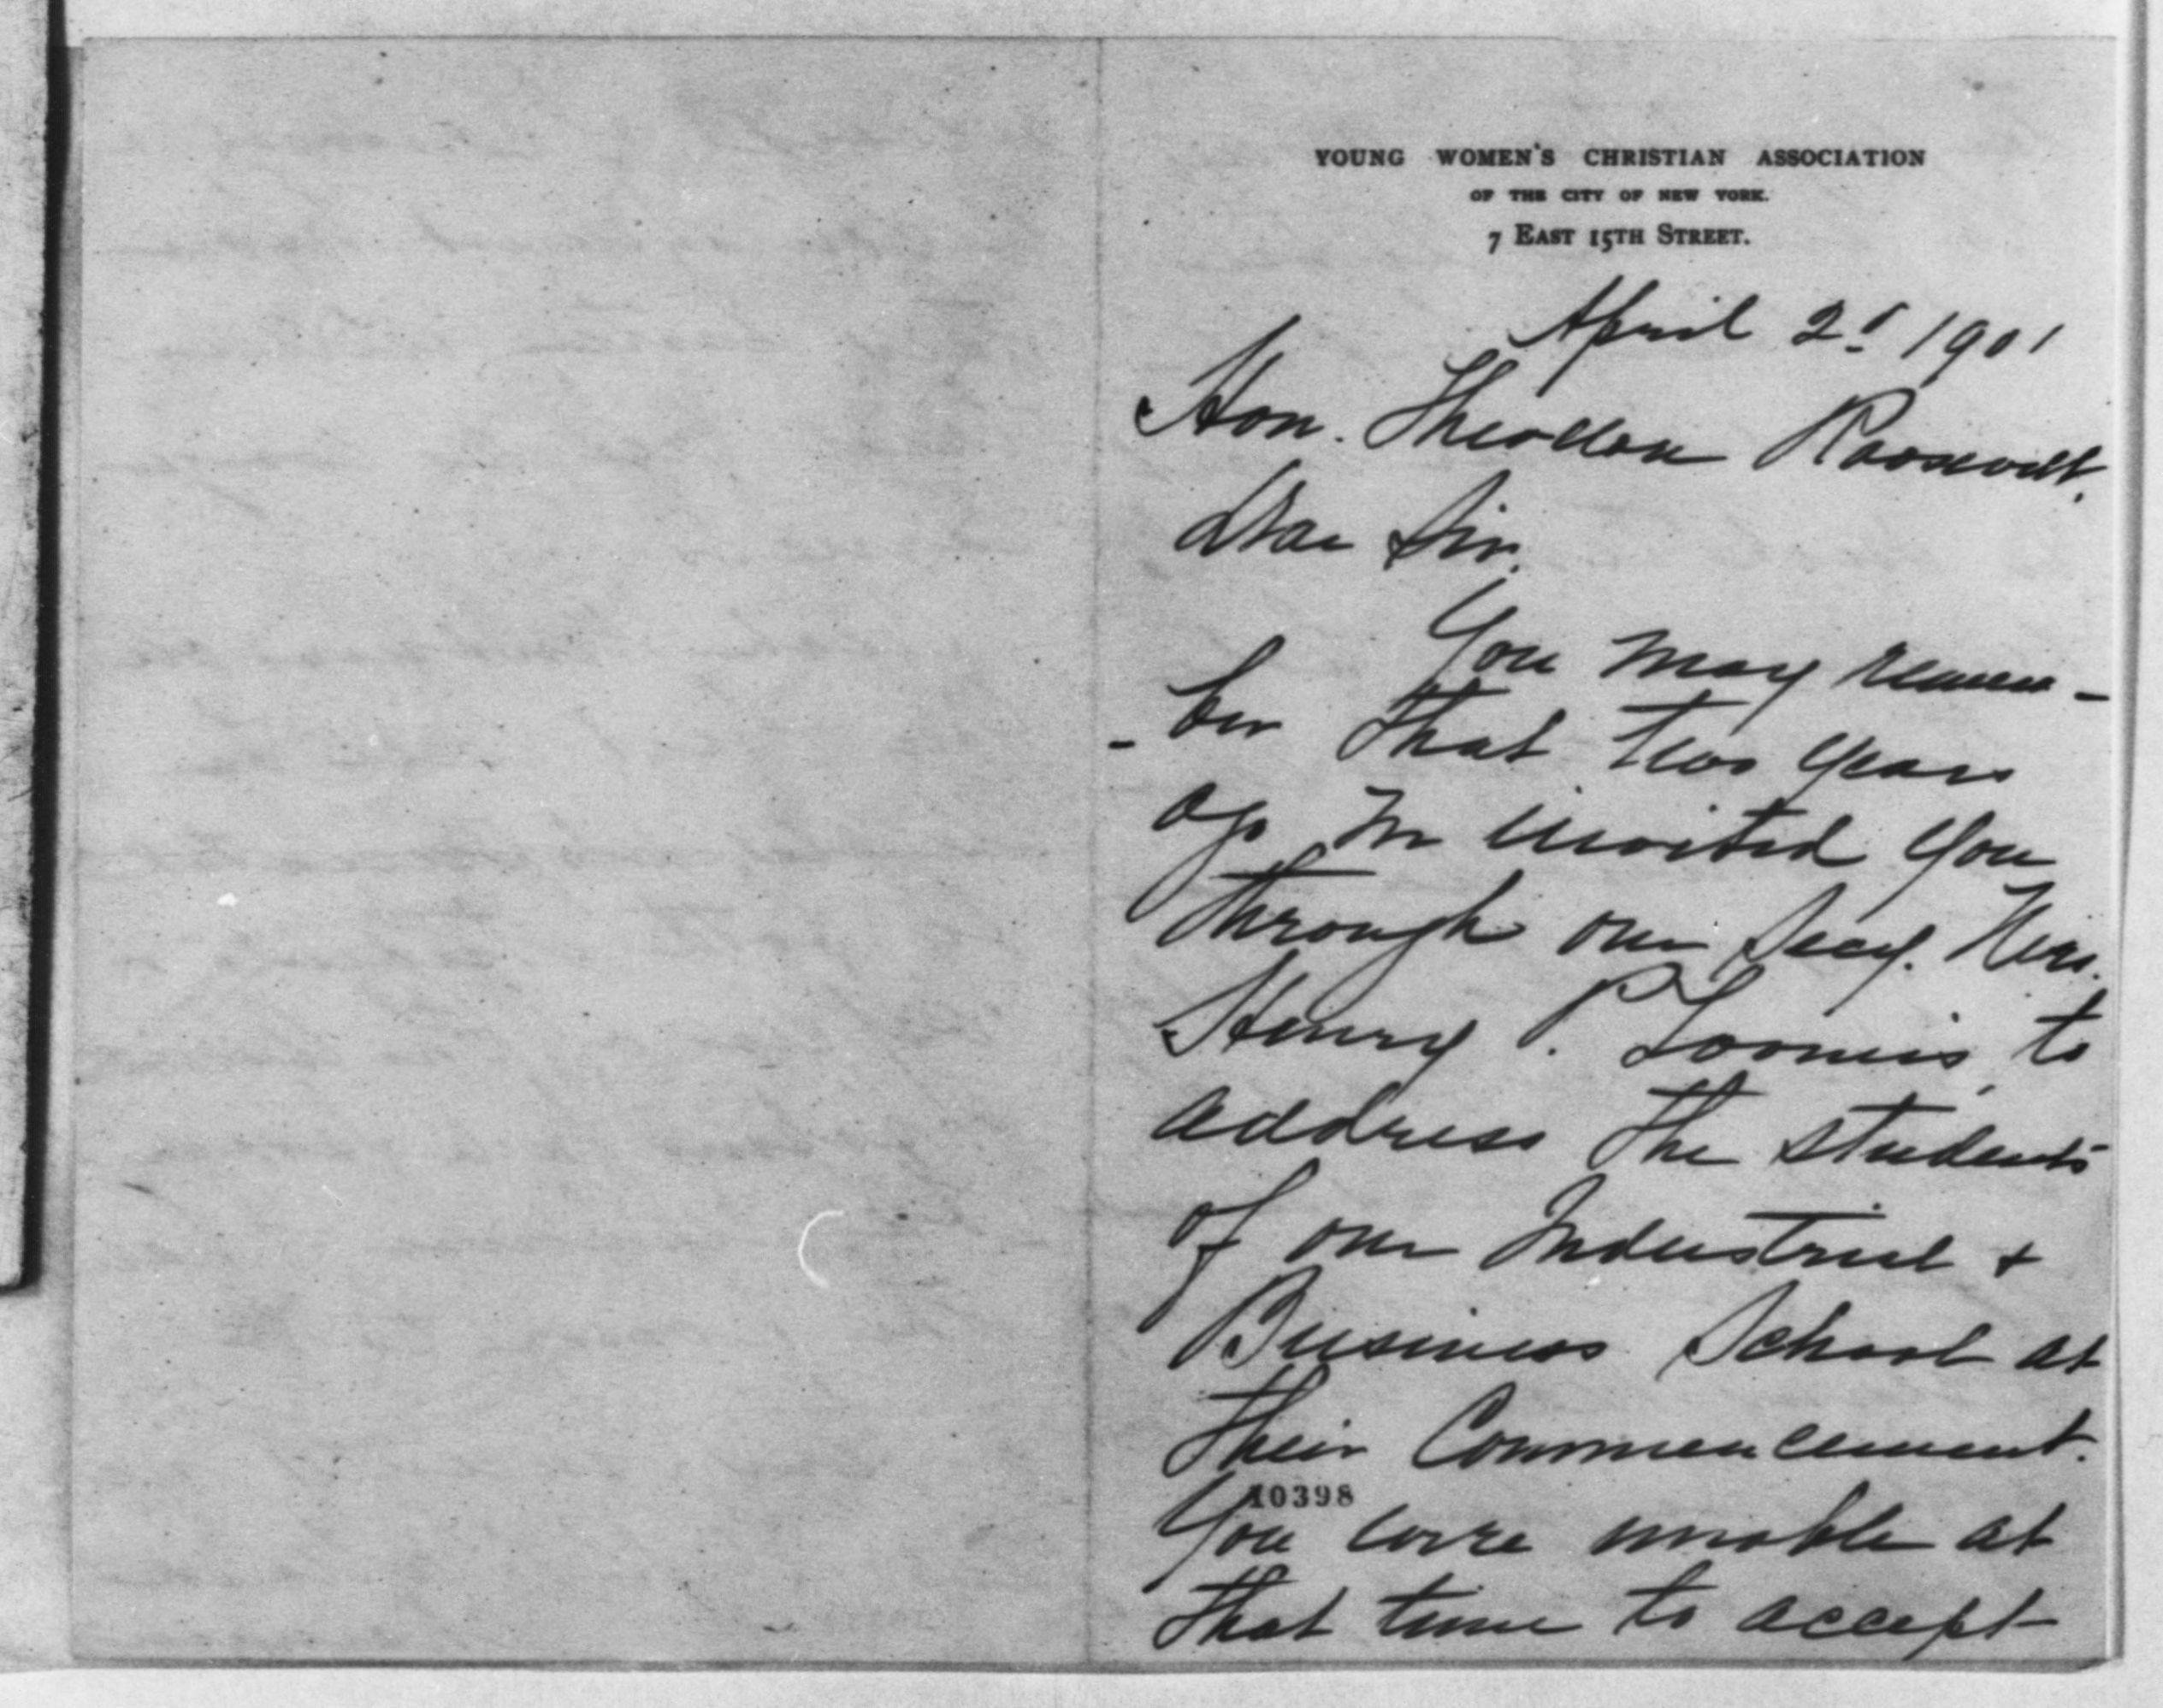 YOUNG WOMEN'S CHRISTIAN ASSOCIATION
OF THE CITY OF NEW YORK.
7 EAST 15TH STREET.
April 2d 1901
Hon. Theodore Roosevelt.
Dear Sir.
You may remem-
-ber that two years
ago we invited you
through our Secy. Mrs.
Henry P. Loomis, to
address the students
of our Industrial +
Business School at
their Commencement.
10398
You were unable at
that time to accept